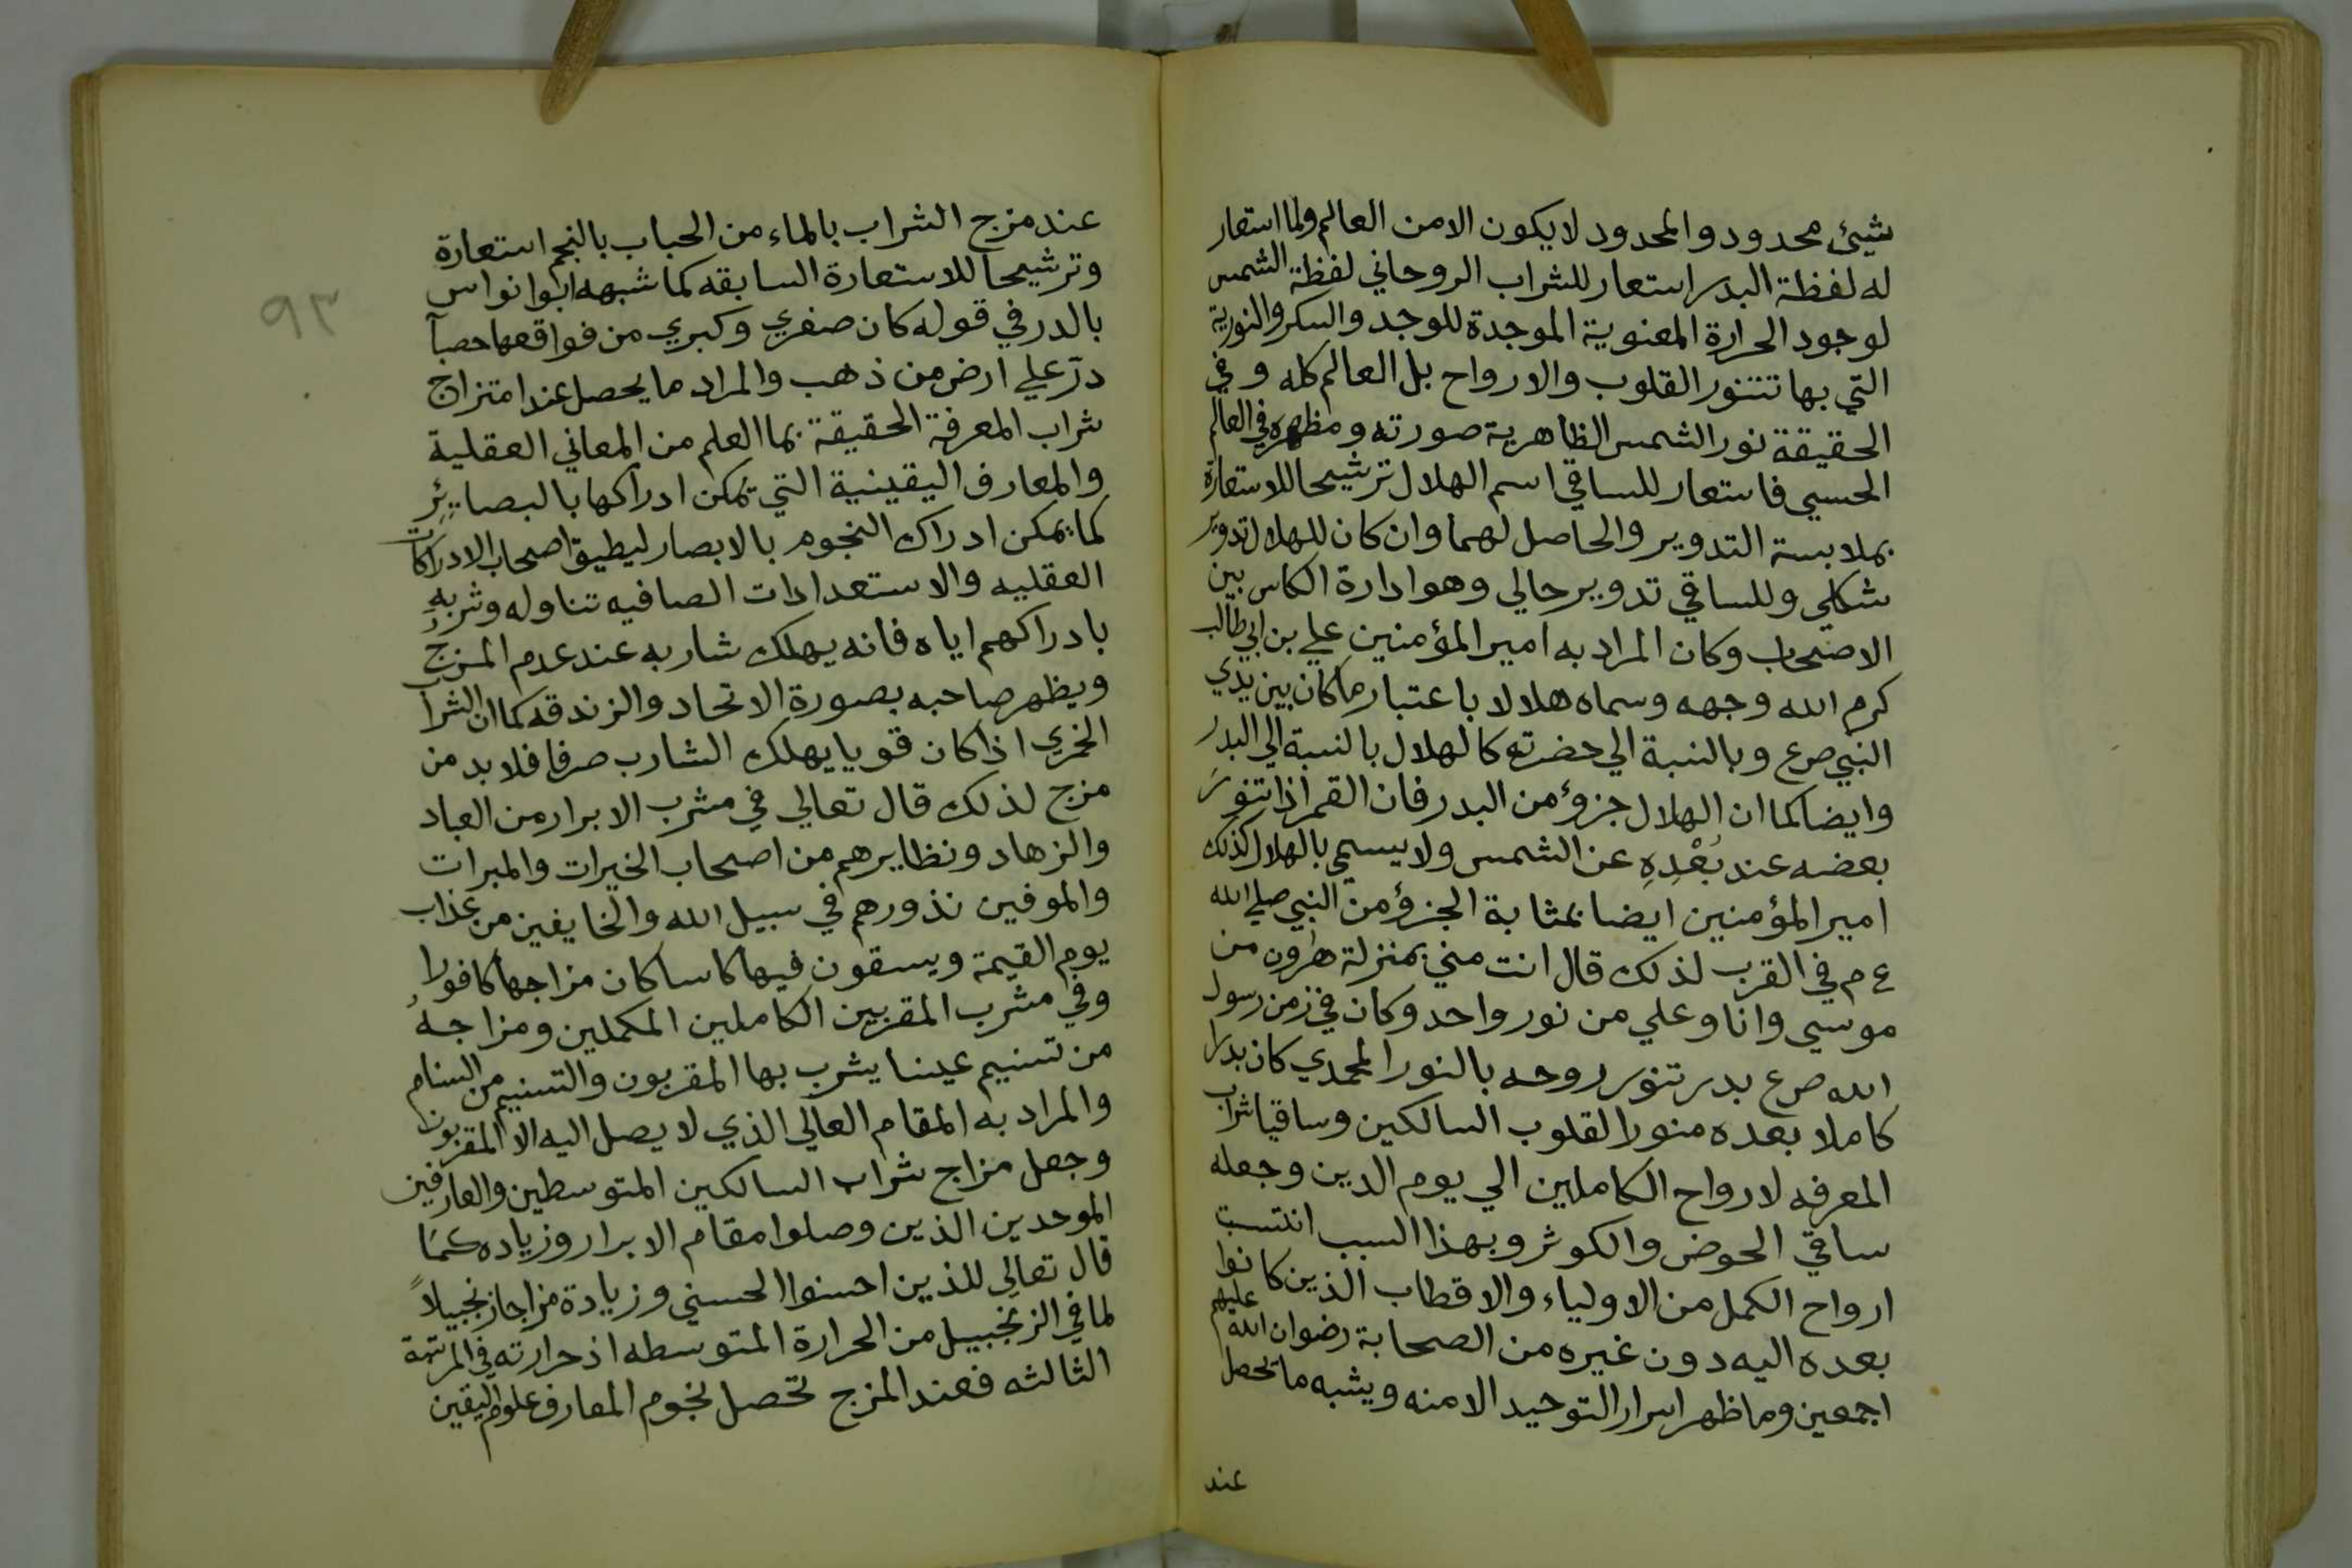 شيئ محدود والمحدود لا يكون الا من العالم ولما استعار
له لفظة البدر استعار للشراب الروحاني لفظة الشمس
لوجود الحرارة المعنوية الموجدة للوجد والسكر والنورية
التي بها تتنور القلوب والارواح بل العالم كله وفي
الحقيقة نور الشمس الظاهرية صورته ومظهره في العالم
الحسي فاستعار للساقي اسم الهلال ترشيحا للاستعارة
بملابسة التدوير والحاصل لهما وان كان للهلال تدوير
شكلي وللساقي تدوير حالي وهو ادارة الكاس بين
الاصحاب وكان المراد به امير المؤمنين علي بن ابي طالب
كرم الله وجهه وسماه هلالا باعتبار ما كان بين يدي
النبي صرع وبالنسبة الي حضرته كالهلال بالنسبة الي البدر
وايضا كما ان الهلال جزؤ من البدر فان القمر اذا تنور
بعضه عند بُعْدِهِ عن الشمس ولا يسمي بالهلال كذلك
امير المؤمنين ايضا بمثابة الجزؤ من النبي صلي الله
ع م في القرب لذلك قال انت مني بمنزلة هرون من
موسي وانا وعلي من نور واحد وكان في زمن رسول
الله صرع بدر تنور روحه بالنور المحمدي كان بدرا
كاملا بعده منور القلوب السالكين وساقيا شراب
المعرفه لارواح الكاملين الي يوم الدين وجعله
ساقي الحوض والكوثر وبهذا السبب انتسبت
ارواح الكمل من الاولياء والاقطاب الذين كانوا
بعده اليه دون غيره من الصحابة رضوان الله عليهم
اجمعين وما ظهر اسرار التوحيد الا منه ويشبه ما يحصل
عند
٩٣
عند مزج الشراب بالماء من الحباب بالنجم استعارة
وترشيحا للاستعارة السابقه كما شبهه ابوا نواس
بالدر في قوله كان صغري وكبري من فواقعها حصبآ
درّ علي ارض من ذهب والمراد ما يحصل عند امتزاج
شراب المعرفة الحقيقة بما العلم من المعاني العقلية
والمعارف اليقينية التي تمكن ادراكها بالبصايئر
كما يمكن ادراك النجوم بالابصار ليطيق اصحاب الادراكات
العقليه والاستعدادات الصافيه تناوله وشربه
بادراكهم اياه فانه يهلك شاربه عند عدم المزج
ويظهر صاحبه بصورة الاتحاد والزندقه كما ان الشراب
الخمري اذا كان قويا يهلك الشارب صرفا فلا بد من
مزج لذلك قال تعالي في مشرب الابرار من العباد
والزهاد ونظايرهم من اصحاب الخيرات والمبرات
والموفين نذورهم في سبيل الله والخايفين من عذاب
يوم القيمة ويسقون فيها كاسا كان مزاجها كافورا
وفي مشرب المقربين الكاملين المكملين ومزاجهُ
من تسنيم عينا يشرب بها المقربون والتسنيم من السنام
والمراد به المقام العالي الذي لا يصل اليه الا المقربون
وجعل مزاج شراب السالكين المتوسطين والعارفين
الموحدين الذين وصلوا مقام الابرار وزياده كما
قال تعالي للذين احسنوا الحسني وزيادة مزاجا زنجبيلاً
لما في الزنجبيل من الحرارة المتوسطه اذ حرارته في المرتبة
الثالثه فعند المزج تحصل نجوم المعارف علوم اليقين